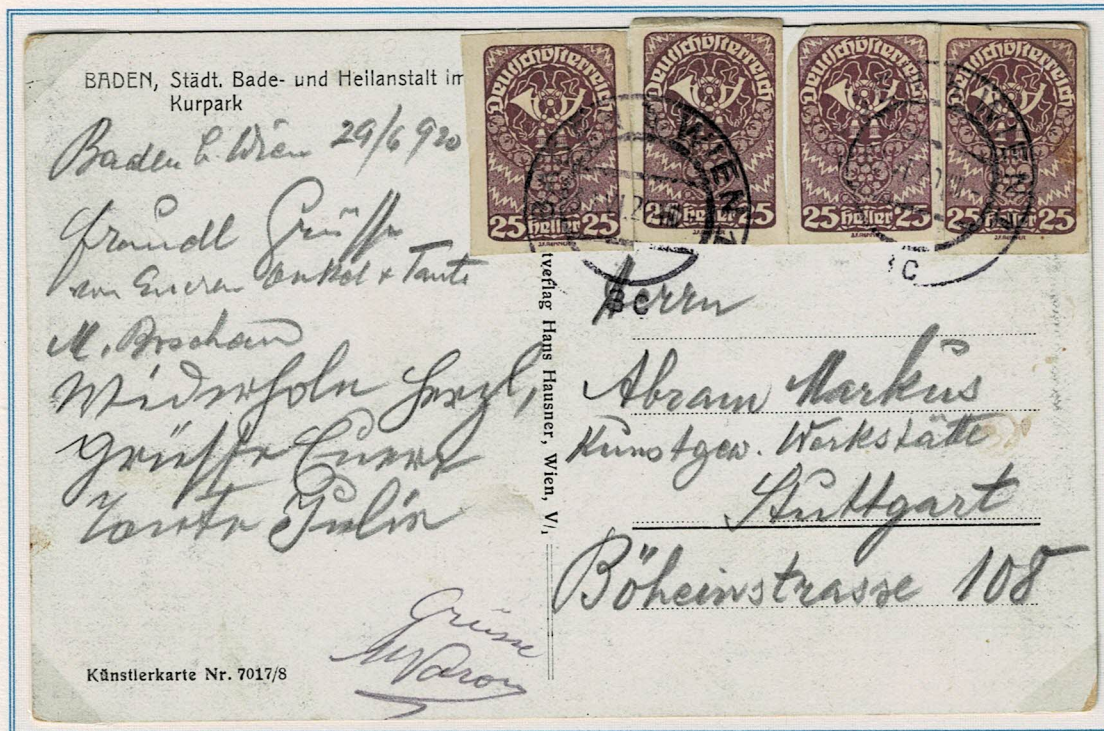 BADEN, Städt. Bade- und Heilanstalt im
Kurpark
Baden b. Wien 29/6 920
freundl Grüsse
von Eueren Onkel & Tante
M.
Wiederholn herzl,
Grüsse Euere
Tante Julia
Grüsse
Künstlerkarte Nr. 7017/8
Deutschösterreich
25 Heller 25
Deutschösterreich
25 Heller 25
Deutschösterreich
25 Heller 25
Deutschösterreich
25 Heller 25
WIEN
WIEN
3c
3c
tverlag Hans Hausner, Wien, V/1
Herrn
Abram Markus
Kunstgew. Werkstätte
Stuttgart
Böheinstrasse 108